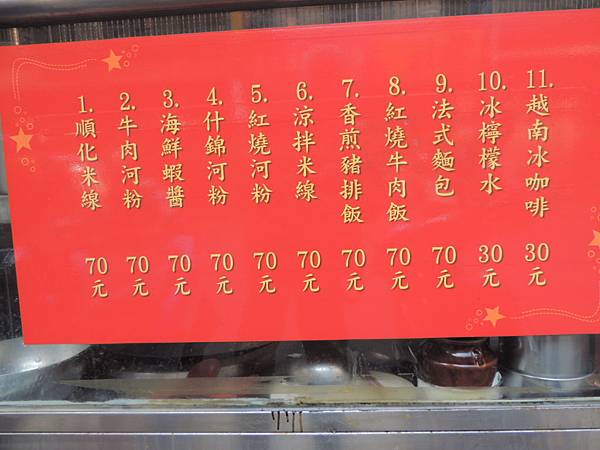 1.順化米線 70元
2.牛肉河粉 70元
3.海鮮蝦醬 70元
4.什錦河粉 70元
5.紅燒河粉 70元
6.涼拌米線 70元
7.香煎豬排飯 70元
8.紅燒牛肉飯 70元
9.法式麵包 70元
10.冰檸檬水 30元
11.越南冰咖啡 30元